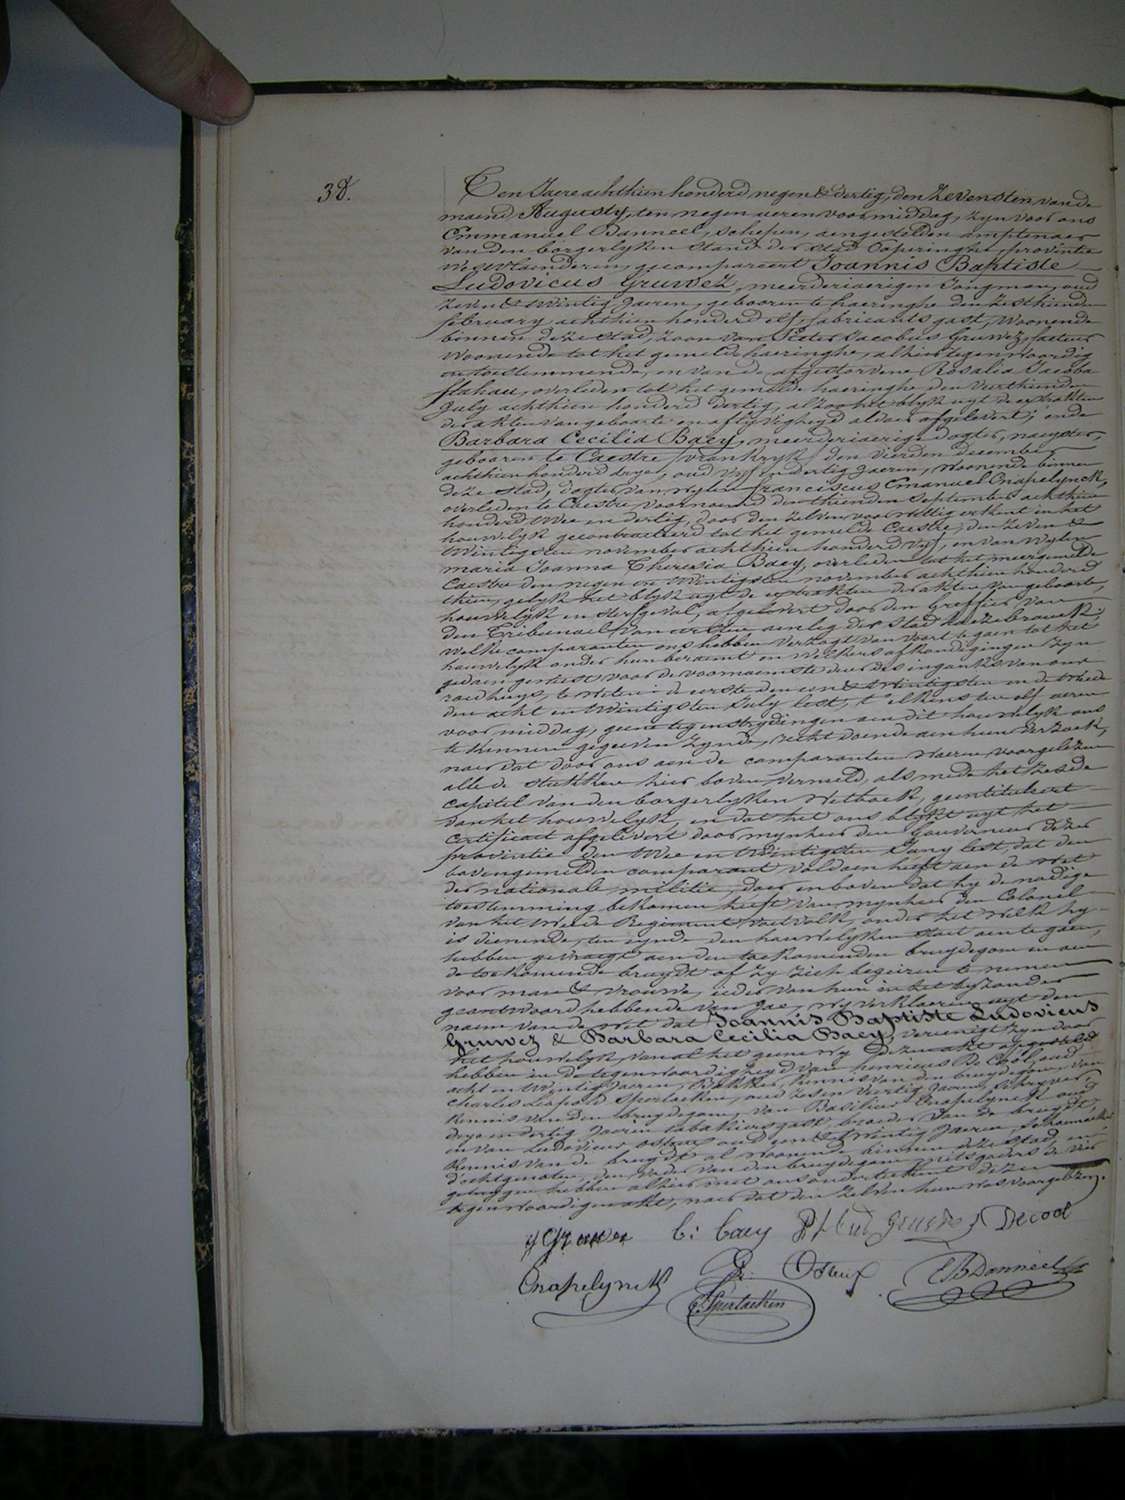 38.
Den Jaere achthien honderd negen & dertig, den zevensten van de
maend Augusty, ten negen ueren voor middag, zyn voor ons
Emmanuel Banneel, schepen, aengestelden amptenaer
van den borgerlyken stand der stad Poperinghe, provintie
Westvlaenderen, gecompareert Joannis Baptiste
Ludovicus Gruwez, meerderjaerigen Jongman, oud
zeven & twintig Jaeren, gebooren te haeringhe den zesthienden
february achthien honderd elf, fabricants gast, woonende
binnen deze stad, zoon van Pieter Jacobus Gruwez, facteur
woonende tot het gemelde haeringhe, alhier tegenwoordig
en toestemmende, en van de afgestorvene Rosalia Jacoba
flahau, overleden tot het gemelde haeringhe den veerthienden
July achthien honderd dertig, alzoo het blykt uyt de extrakten
der akten van geboorte en aflyvigheyd aldaer afgelevert; ende
Barbara Cecilia Baey, meerderjaerige dogter, naeyster,
gebooren te Caestre (vrankryk) den vierden december
achthien honderd drye, oud vyf en dertig Jaeren, woonende binnen
deze stad, dogter van wylen franciscus Emanuel Cnapelynck,
overleden te Caestre, voornoemd den thienden september achthien
honderd twee en dertig, door den zelven voor wettig erkent in het
houwelyk gecontracteerd tot het gemelde Caestre, den zeven &
twintigsten november achthien honderd vyf, en van wylen
maria Joanna Theresia Baey, overleden tot het meergemelde
Caestre den negen en twintigsten november achthien honderd
thien, gelyk het blykt uyt de extrakten der akten van geboorte,
houwelyk en sterfgeval, afgelevert door den Greffier van
den Tribunael van eersten aenleg der stad haezebrouck;
welke comparanten ons hebben verzogt van voort te gaen tot het
houwelyk onder hun beraemt en welkers afkondigingen zyn
gedaen geweest voor de voornaemste deur des ingancks van ons
raedhuys, te weten: de eerste den een & twintigsten en de tweede
den acht en twintigsten July lest, t'elkens ten elf ueren
voor middag, geene tegenstrydingen aen dit houwelyk ons
te kennen gegeven zynde, recht doende aen hun verzoek,
naer dat door ons aen de comparanten waeren voorgelezen
alle de stukken hier boven vermeld, als mede het zesde
capitel van den borgerlyken Wetboek, geintituleert
van het houwelyk, en dat het ons blykt uyt het
Certificaet afgelevert door mynheer den Gouverneur dezer
provintie den twee en twintigsten Juny lest, dat den
bovengemelden comparant voldaen heeft aen de wet
der nationale militie, daer en boven dat hy de noodige
toestemming bekomen heeft van mynheer den Colonel
van het tweede Regiment voet volk, onder het welk hy
is dienende, ten eynde den houwelyken staet aen te gaen,
hebben gevraegt aen den toekomenden bruydegom en aen
de toekomende bruydt of zy zich begeiren te nemen
voor man & vrouwe, ieder van hun in het byzonder
geantwoord hebbende van Jae, wy verklaeren uyt den
naem van de Wet dat Joannis Baptiste Ludovicus
Gruwez & Barbara Cecilia Baey, vereenigt zyn door
het houwelyk, van al het geene wy dezen akt opgesteld
hebben in de tegenwoordigheyd van henricus De Cool, oud
acht en twintig Jaeren, Bakker, kennis van den bruydegom, van
Charles Leopold Sperlaeken, oud zes en veertig Jaeren, schryver,
kennis van den bruydegom, van Basilius Cnapelynck oud
drye en dertig Jaeren tabakiersgast, broeder van de bruydt,
en van Ludovicus Osteux oud een & twintig Jaeren, schoenmaeker
kennis van de bruydt al woonende binnen deze stad, en
d'echtgenoten, den vader van den bruydegom mitsgaders de vier
getuygen hebben alhier met ons onderteekent dezen
tegenwoordigen akt, naer dat den zelven hun was voorgelezen.
c: baey
Decool
Cnapelynck
Osteux
Sperlaeken